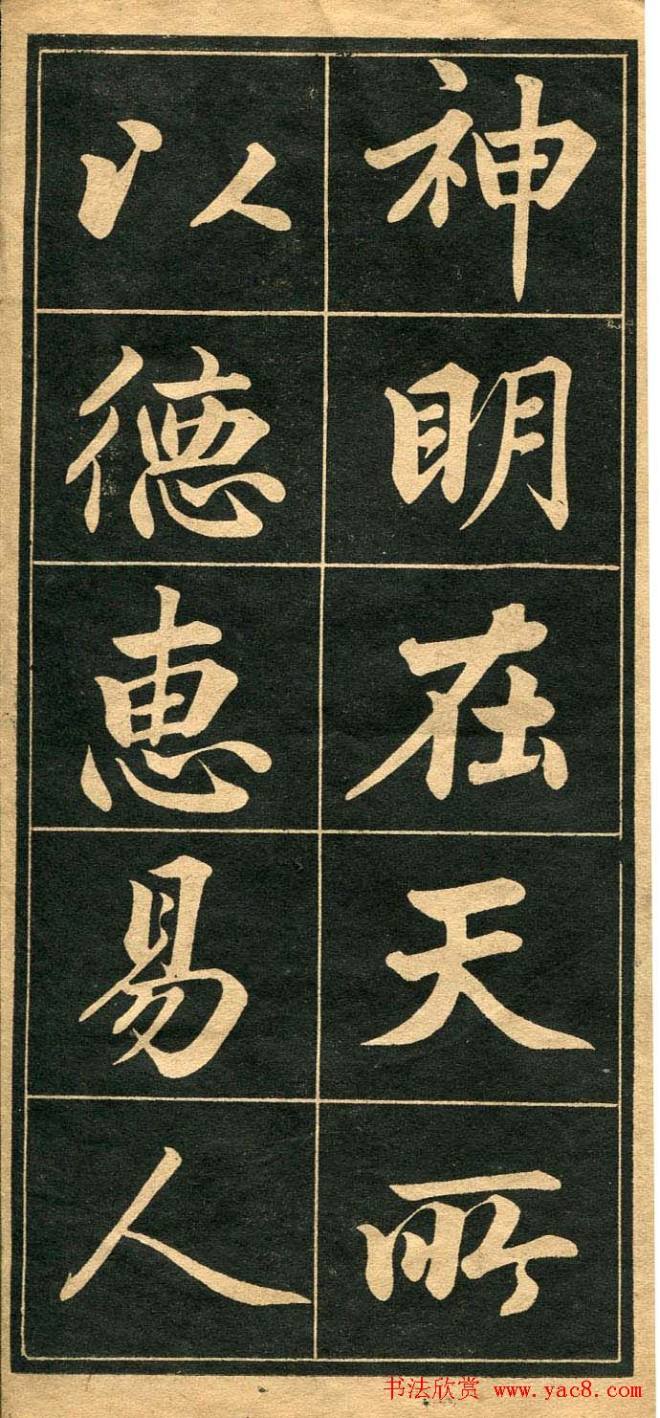 神明在天所
以德惠易人
书法欣赏 www.yac8.com